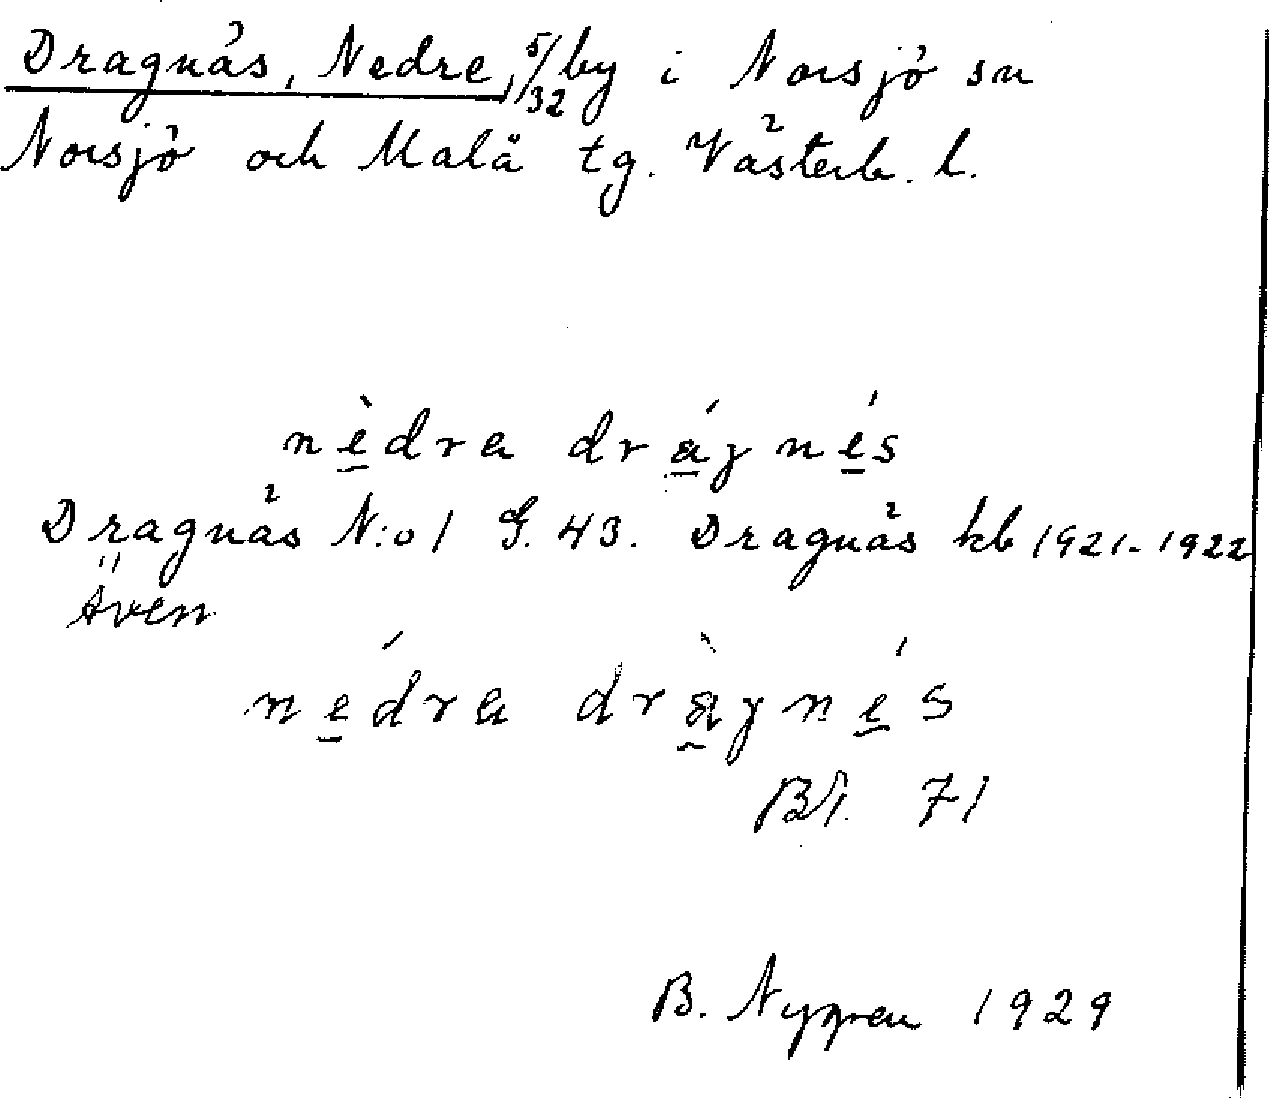 Dragnäs, Nedre, 5/32 by i Norsjö sn
Norsjö och Malå tg. Västerb. l.
nèdra drágnés
Dragnäs N:o 1 G. 43. Dragnäs kb 1921-1922
Även
nédra dràgnés
Bl. 71
B. Nygren 1929